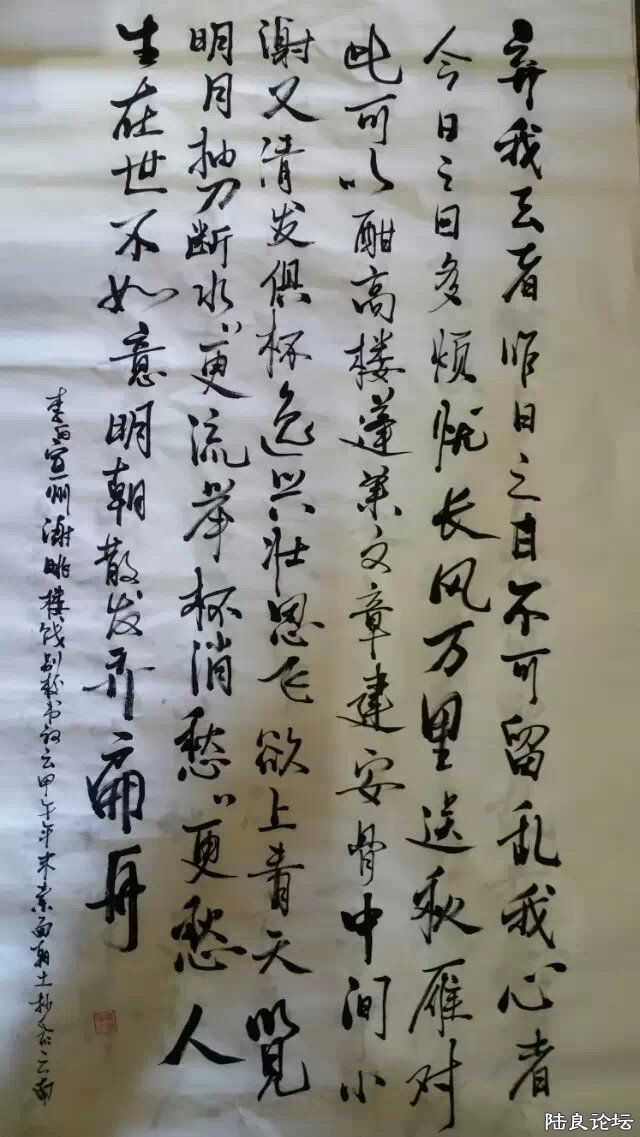 弃我去者昨日之日不可留乱我心者
今日之日多烦忧长风万里送秋雁对
此可以酣高楼蓬莱文章建安骨中间小
谢又清发俱怀逸兴壮思飞欲上青天览
明月抽刀断水〃更流举杯消愁〃更愁人
生在世不如意明朝散发弄扁舟
李白宣州谢朓楼饯别校书叔云甲午年末素面朝土抄于云南
陆良论坛